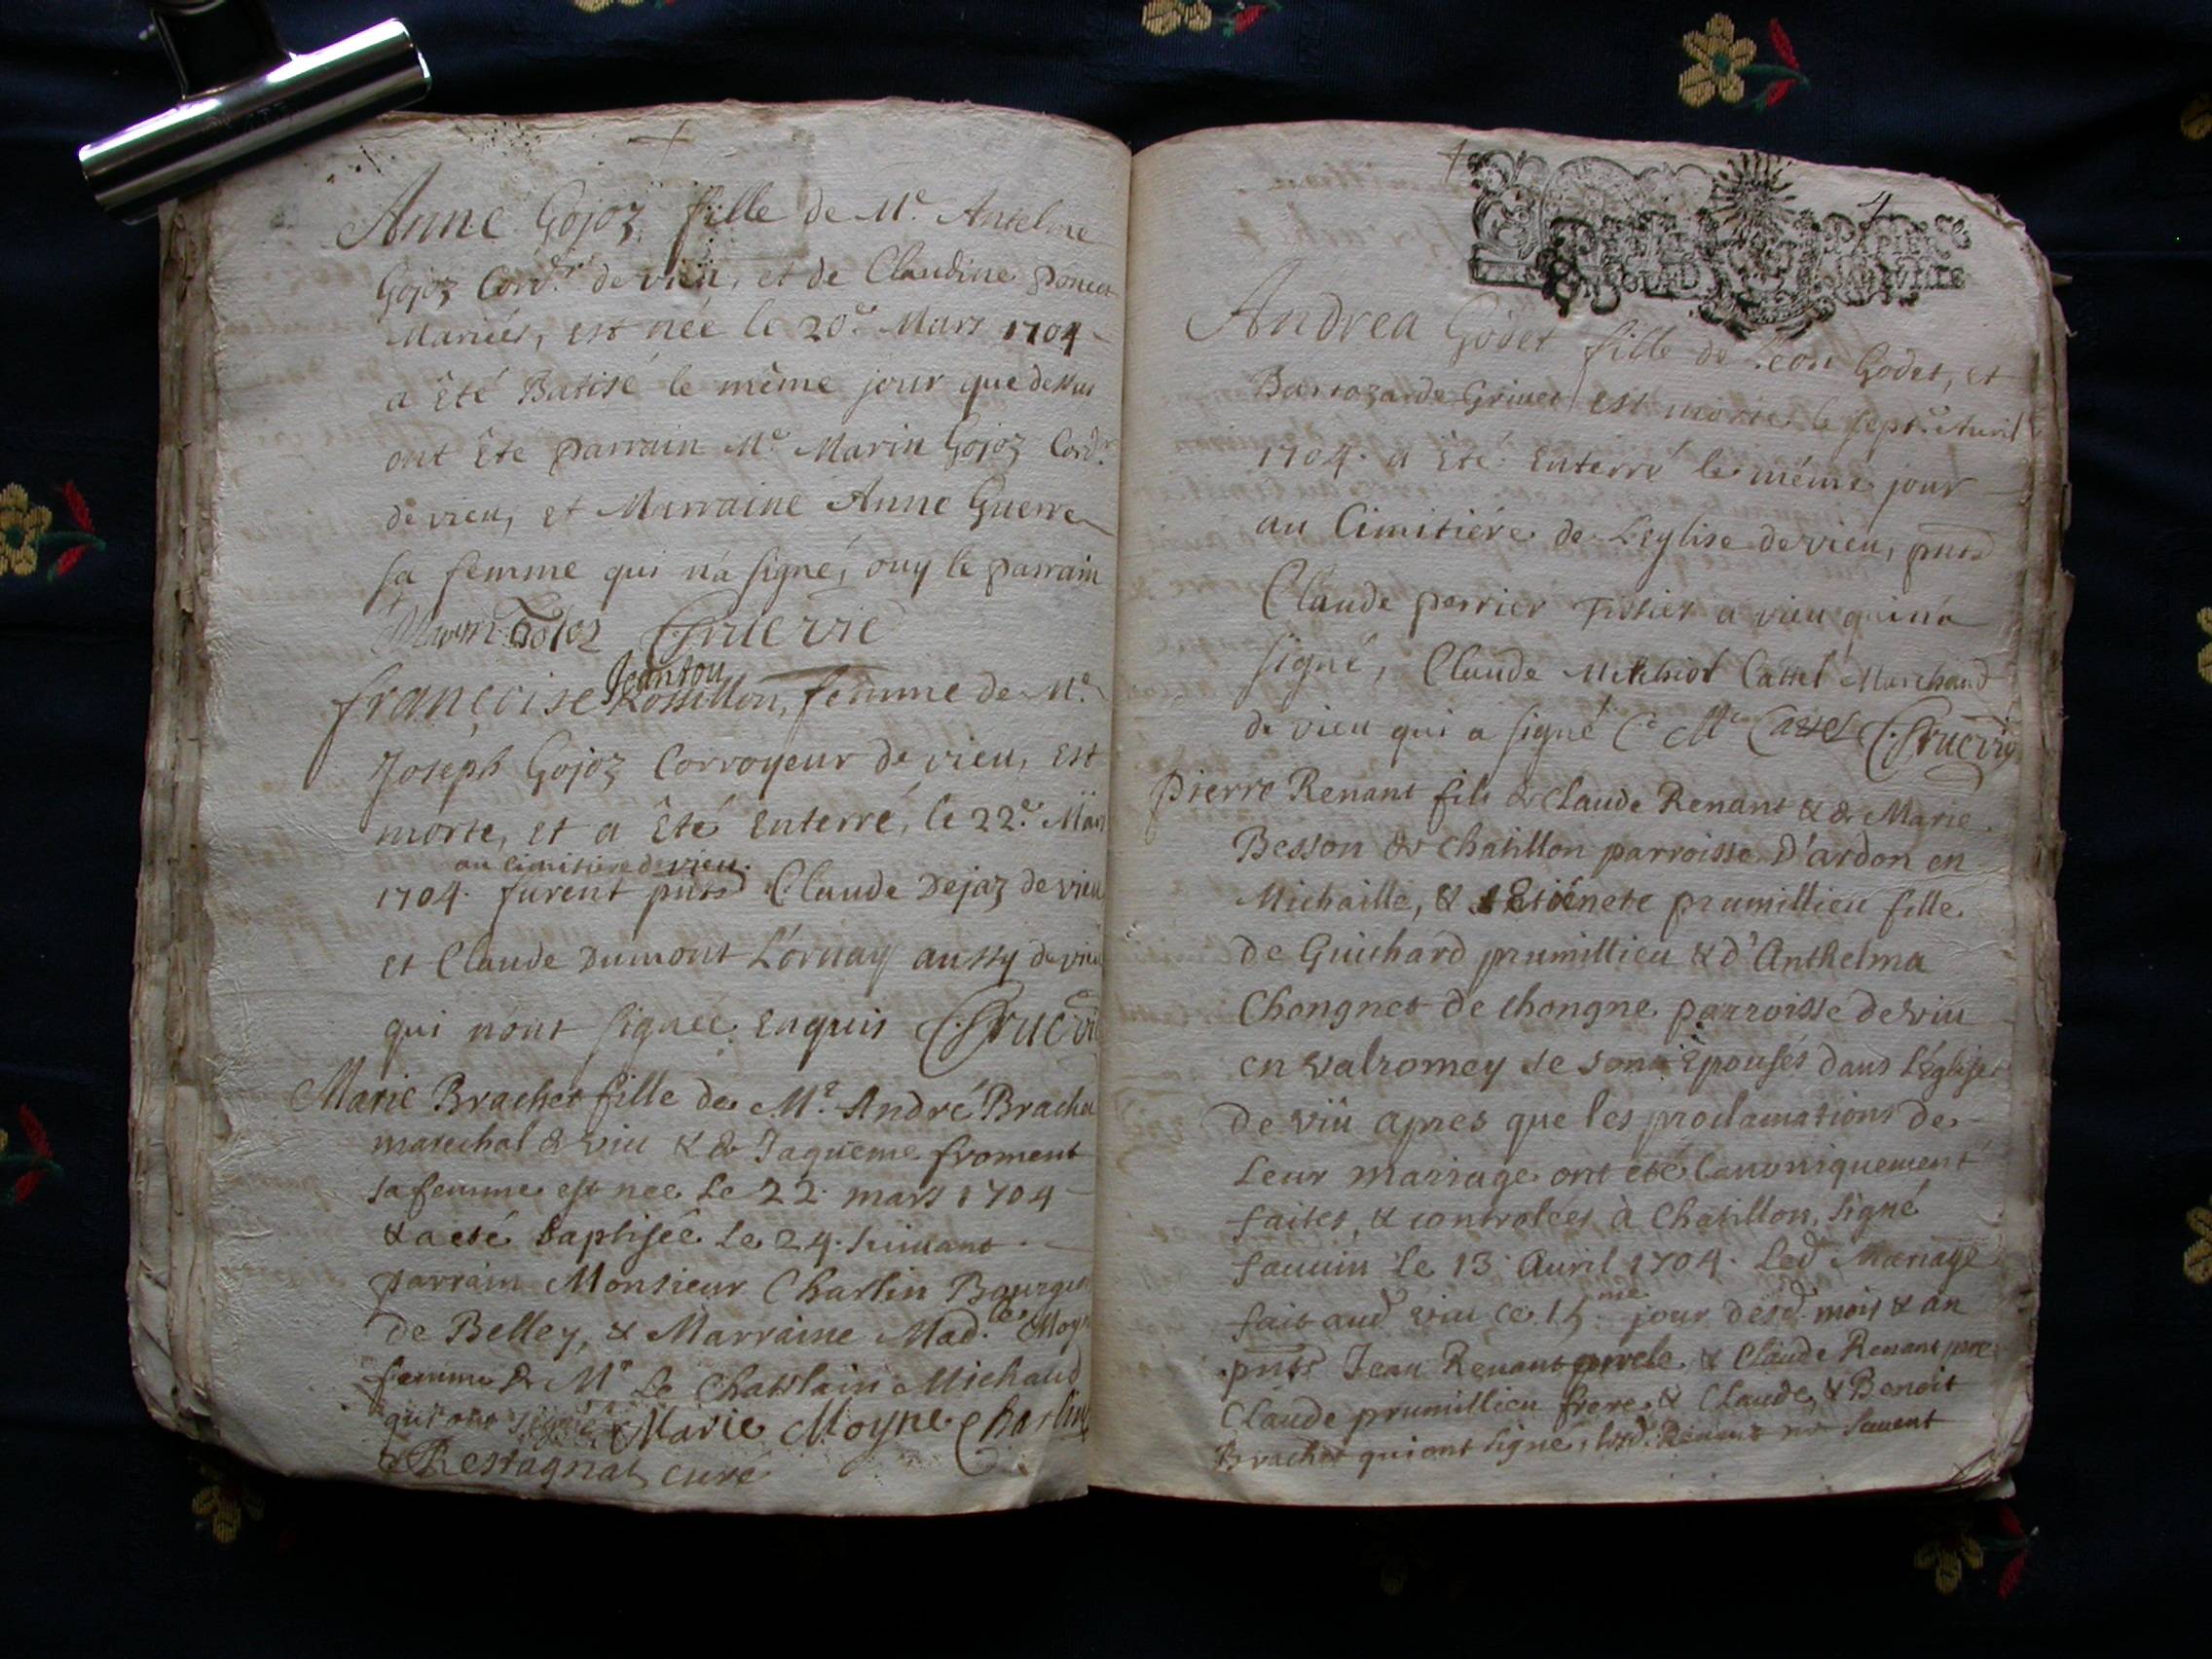 Anne Gojoz fille de Me. Antelme
Gojoz Cordr. de vieu, et de Claudine poncet
Mariés, est née le 20e. Mars 1704
a été Batisé le même jour que dessus
ont Ete parrain Me Marin Gojoz Cordr.
de vieu, et Marraine Anne Guerre
sa femme qui n'a signé, ouy le parrain
Marin Gojoz
Jeantou
françoise Rossillon, femme de Me.
Joseph Gojoz Corroyeur de vieu, Est
morte, et a Eté Enterré, le 22e. Mars
au Cimitiére de vieu.
1704. furent pnts Claude Dejaz de vieu
et Claude Dumont L'ornay aussy de vieu
qui nont signée Enquis
Marie Brachet fille de Me. André Brachet
marechal de viu & de Jaqueme froment
sa femme est née Le 22. mars 1704
& a eté baptisée Le 24. suivant
parrain Monsieur Charlin Bourgeo
de Belley, & Marraine Mad.lle Moyne
femme de Mr Le Chatelain Michaud
qui ont signé. Marie Moyne Charlin
Restagnat curé
4
Andrea Godet fille de Leon Godet, et
Grinet est morte le sept.e Avril
1704. a Eté Enterré le même jour
au Cimitiére de L'eglise de vieu, pnts
Claude perrier Tissier a vieu qui n'a
signé, Claude Melchiol Cattel Marchand
de vieu qui a signé C Mel Cattel
pierre Renant fils de Claude Renant & de Marie
Besson de Chatillon parroisse D'ardon en
Michaille, & Etiénete prumillieu fille
de Guichard prumillieu & d'Anthelma
Chongnet de Chongne parroisse de viu
en valromey se sont Epousés dans L'Eglise
de viu apres que les proclamations de
Leur mariage ont eté Canoniquement
faites, & controlées à Chatillon, signé
fauuin Le 13 Auril 1704. Led Mariage
fait aud viu ce 15.me jour desd. mois & an
pnts Jean Renant & Claude Renant pere
Claude prumillieu frere, & Claude, & Benoit
Brachet qui ont signé, lesd. Renant ne sauent